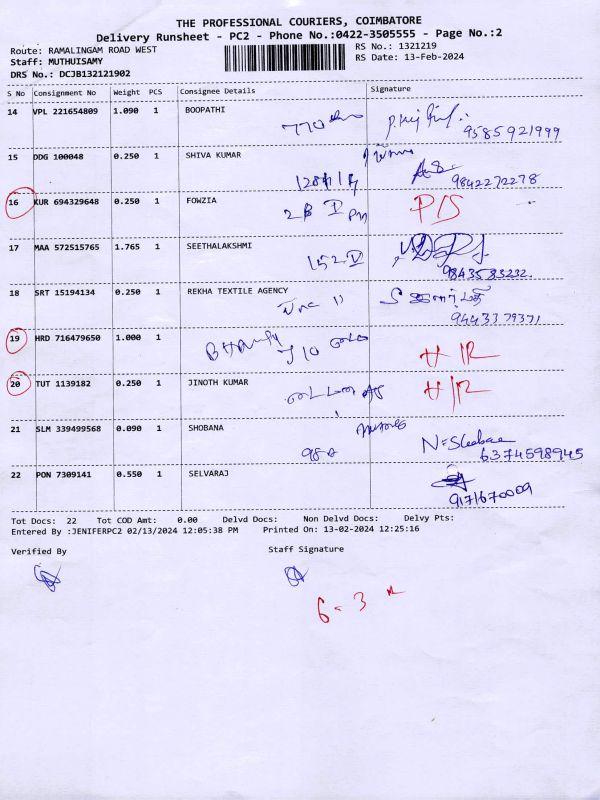 THE PROFESSIONAL COURIERS, COIMBATORE
Delivery Runsheet - PC2 - Phone No.:0422-3505555 - Page No.:2
Route: RAMALINGAM ROAD WEST
RS No.: 1321219
Staff: MUTHUISAMY
RS Date: 13-Feb-2024
DRS No.: DCJB132121902
S No Consignment No Weight PCS Consignee Details Signature
14 VPL 221654809 1.090 1 BOOPATHI
770
9585921999
15 DDG 100048 0.250 1 SHIVA KUMAR
9842272278
16 KUR 694329648 0.250 1 FOWZIA
28 I PM P/S
17 MAA 572515765 1.765 1 SEETHALAKSHMI
152 V
9843583232
18 SRT 15194134 0.250 1 REKHA TEXTILE AGENCY
9443379371
19 HRD 716479650 1.000 1
H/R
20 TUT 1139182 0.250 1 JINOTH KUMAR
H/R
21 SLM 339499568 0.090 1 SHOBANA
982
6374598945
22 PON 7309141 0.550 1 SELVARAJ
9171670009
Tot Docs: 22 Tot COD Amt: 0.00 Delvd Docs: Non Delvd Docs: Delvy Pts:
Entered By :JENIFERPC2 02/13/2024 12:05:38 PM Printed On: 13-02-2024 12:25:16
Verified By Staff Signature
6 - 3